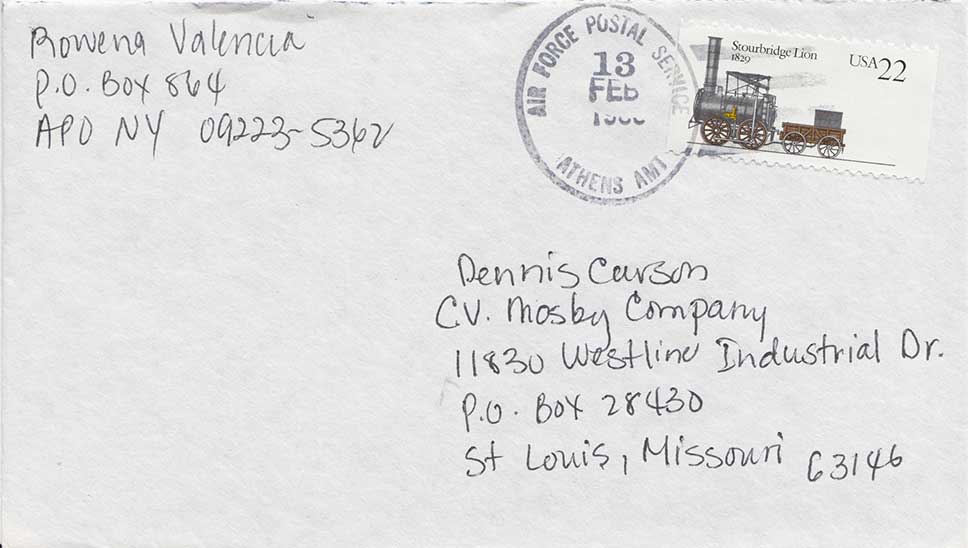 Rowena Valencia
P.O. Box 864
APO NY 09223-5362
AIR FORCE POSTAL SERVICE
13
FEB
ATHENS AMT
Stourbridge Lion
1829
USA22
Dennis Carson
C.V. Mosby Company
11830 Westline Industrial Dr.
P.O. Box 28430
St Louis, Missouri 63146